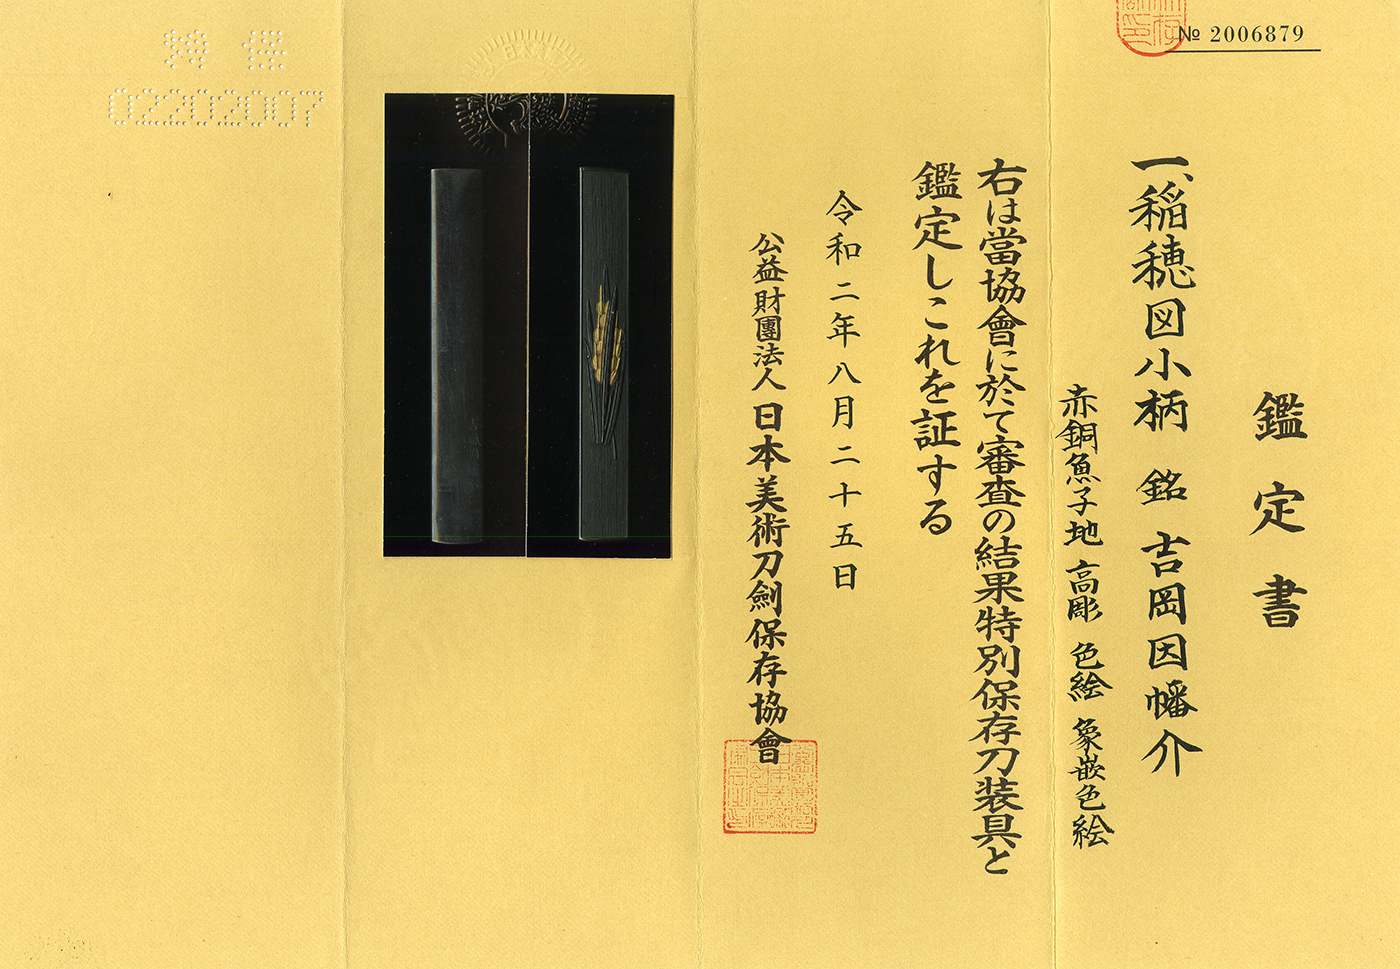 № 2006879
鑑定書
一、稲穂図小柄 銘 吉岡因幡介
赤銅魚子地 高彫 色絵 象嵌色絵
右は當協會に於て審査の結果特別保存刀装具と
鑑定しこれを証する
令和二年八月二十五日
公益財團法人 日本美術刀劍保存協會
特保
02202007